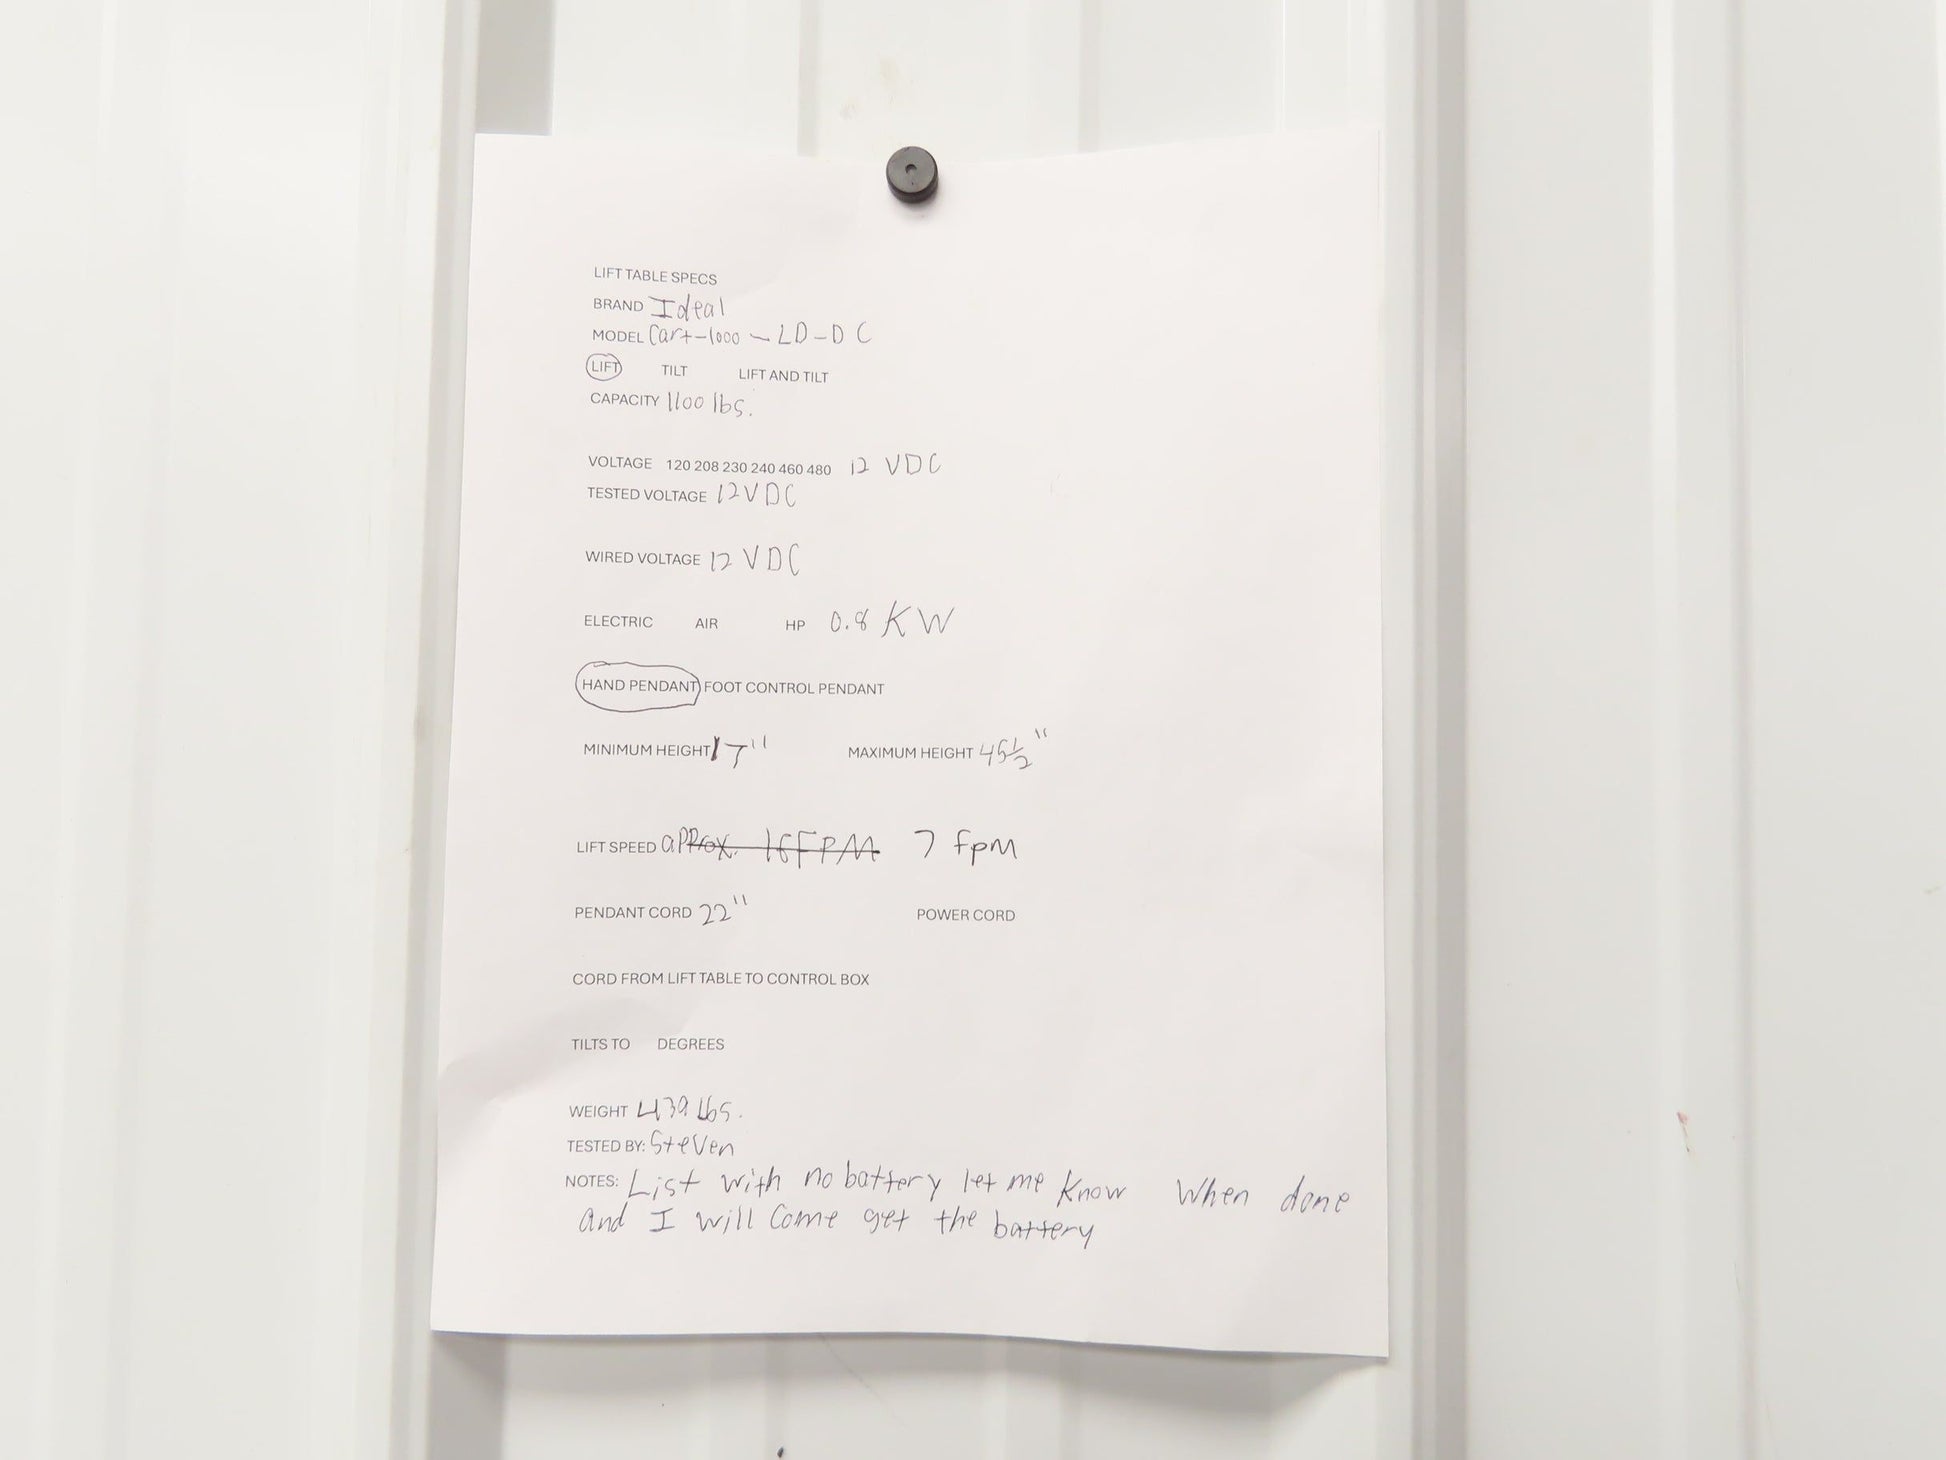 LIFT TABLE SPECS
BRAND Ideal
MODEL Cart-1000-LD-DC
LIFT TILT LIFT AND TILT
CAPACITY 1100 lbs.
VOLTAGE 120 208 230 240 460 480 12 VDC
TESTED VOLTAGE 12VDC
WIRED VOLTAGE 12 VDC
ELECTRIC AIR HP 0.8 KW
HAND PENDANT FOOT CONTROL PENDANT
MINIMUM HEIGHT 17" MAXIMUM HEIGHT 45 1/2"
LIFT SPEED approx. FPM 7 fpm
PENDANT CORD 22" POWER CORD
CORD FROM LIFT TABLE TO CONTROL BOX
TILTS TO DEGREES
WEIGHT 439 lbs.
TESTED BY: Steven
NOTES: List with no battery let me know When done
and I will Come get the battery